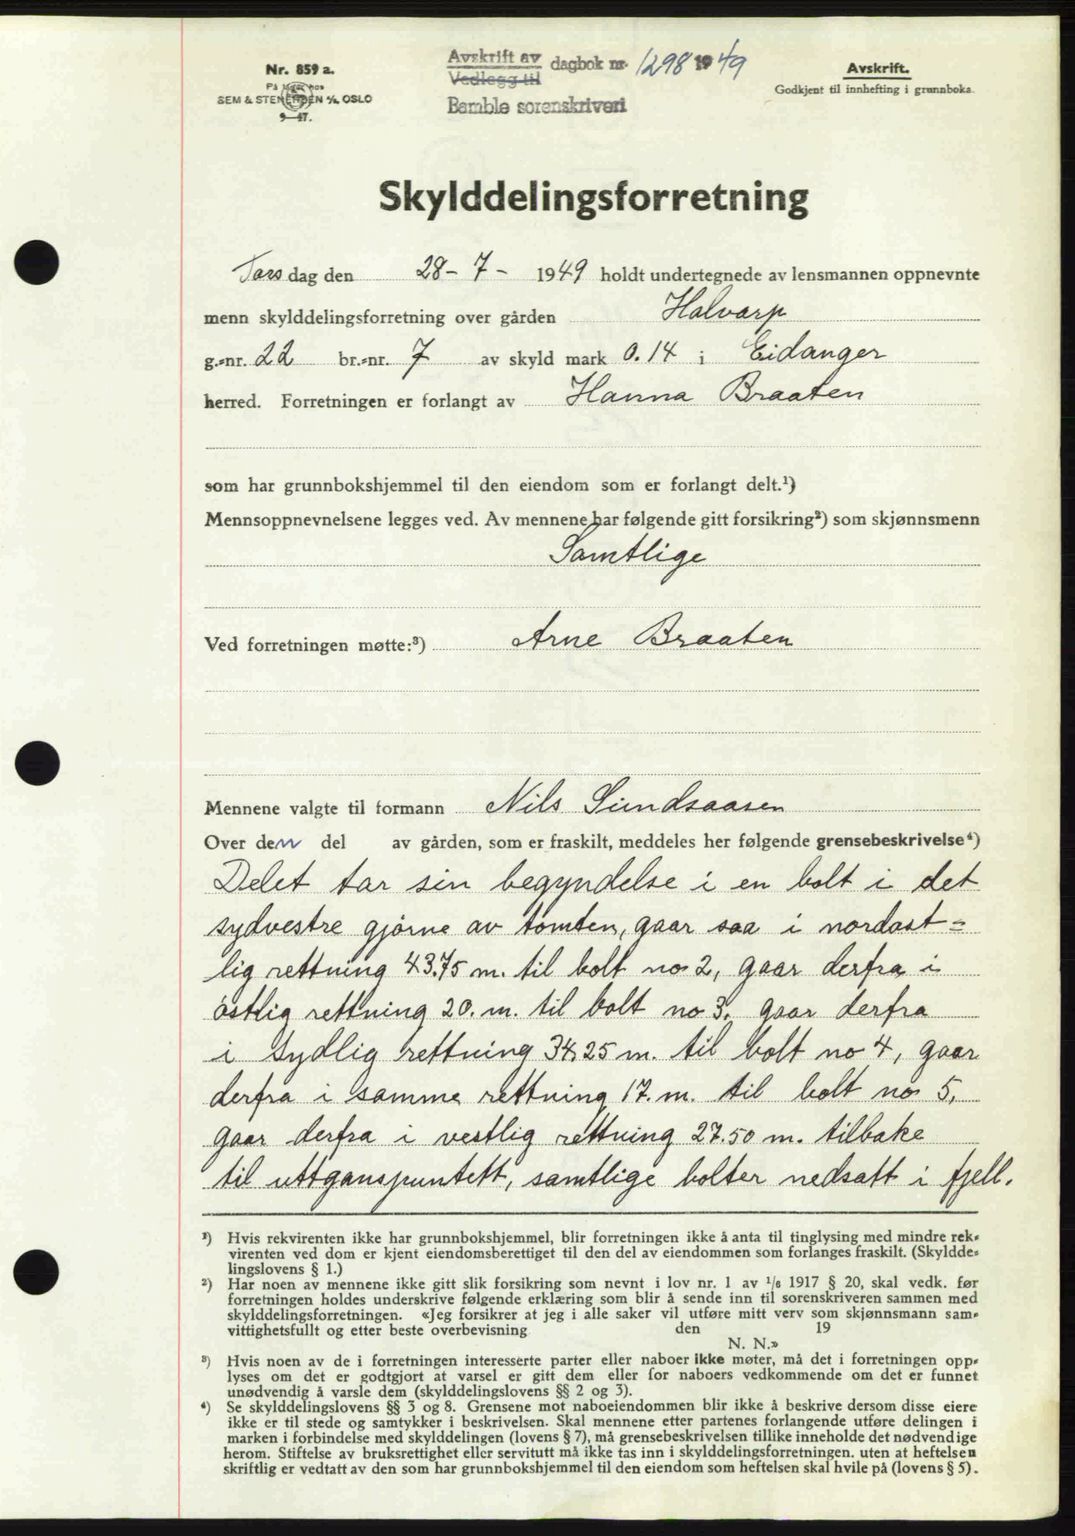 Nr. 859 a.
På lager hos
SEM & STENERSEN A/S, OSLO
9—47.
Avskrift av
Vedlegg til
dagbok nr. 1298 1949
Bamble sorenskriveri
Avskrift.
Godkjent til innhefting i grunnboka.
Skylddelingsforretning
Torsdag den 28- 7- 1949 holdt undertegnede av lensmannen oppnevnte
menn skylddelingsforretning over gården Halvarp
g.-nr. 22 br.-nr. 7 av skyld mark 0.14 i Eidanger
herred. Forretningen er forlangt av Hanna Braaten
som har grunnbokshjemmel til den eiendom som er forlangt delt.¹)
Mennsoppnevnelsene legges ved. Av mennene har følgende gitt forsikring²) som skjønnsmenn
Samtlige
Ved forretningen møtte:³) Arne Braaten
Mennene valgte til formann Nils Sundsaasen
Over den del av gården, som er fraskilt, meddeles her følgende grensebeskrivelse⁴)
Delet tar sin begyndelse i en bolt i det
sydvestre gjørne av tomten, gaar saa i nordøst=
lig rettning 43.75 m. til bolt no 2, gaar derfra i
østlig rettning 20. m. til bolt no 3. gaar derfra
i sydlig rettning 34,25 m. til bolt no 4, gaar
derfra i samme rettning 17. m. til bolt no 5,
gaar derfra i vestlig rettning 27.50 m. tilbake
til uttganspuntett, samtlige bolter nedsatt i fjell.
¹) Hvis rekvirenten ikke har grunnbokshjemmel, blir forretningen ikke å anta til tinglysing med mindre rek-
virenten ved dom er kjent eiendomsberettiget til den del av eiendommen som forlanges fraskilt. (Skyldde-
lingslovens § 1.)
²) Har noen av mennene ikke gitt slik forsikring som nevnt i lov nr. 1 av 1/6 1917 § 20, skal vedk. før
forretningen holdes underskrive følgende erklæring som blir å sende inn til sorenskriveren sammen med
skylddelingsforretningen. «Jeg forsikrer at jeg i alle saker vil utføre mitt verv som skjønnsmann sam-
vittighetsfullt og etter beste overbevisning den 19
N. N.»
³) Hvis noen av de i forretningen interesserte parter eller naboer ikke møter, må det i forretningen opp-
lyses om det er godtgjort at varsel er gitt dem eller for naboers vedkommende om det er funnet
unødvendig å varsle dem (skylddelingslovens §§ 2 og 3).
⁴) Se skylddelingslovens §§ 3 og 8. Grensene mot naboeiendommen blir ikke å beskrive dersom disse eiere
ikke er til stede og samtykker i beskrivelsen. Skal mennene etter partenes forlangende utføre delingen i
marken i forbindelse med skylddelingen (lovens § 7), må grensebeskrivelsen tillike inneholde det nødvendige
herom. Stiftelse av bruksrettighet eller servitutt må ikke tas inn i skylddelingsforretningen. uten at heftelsen
skriftlig er vedtatt av den som har grunnbokshjemmel til den eiendom som heftelsen skal hvile på (lovens § 5).